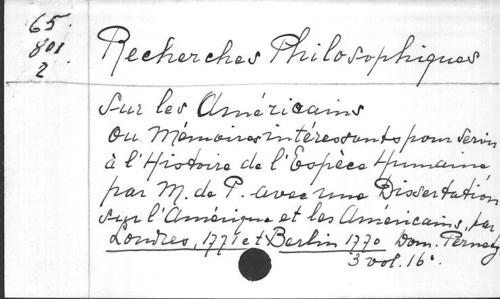 65.
801
2
Recherches Philosophiques
sur les Américains
ou Mémoires intéressants pour servir
à l'Histoire de l'Espèce Humaine
par M. de P. avec une Dissertation
sur l'Amérique et les Américains, par
Londres, 1771 et Berlin 1770 Dom. Pernety
3 vol. 16°.